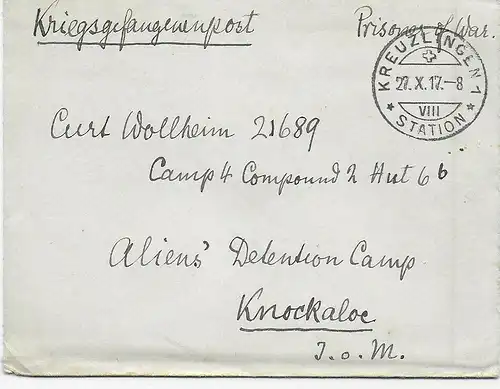 Kriegsgefangenenpost Prisoner of War.
KREUZLINGEN 1
27.X.17.-8
VIII
* STATION *
Curt Wollheim 21689
Camp 4 Compound 2 Hut 6b
Aliens' Detention Camp
Knockaloe
I.o.M.